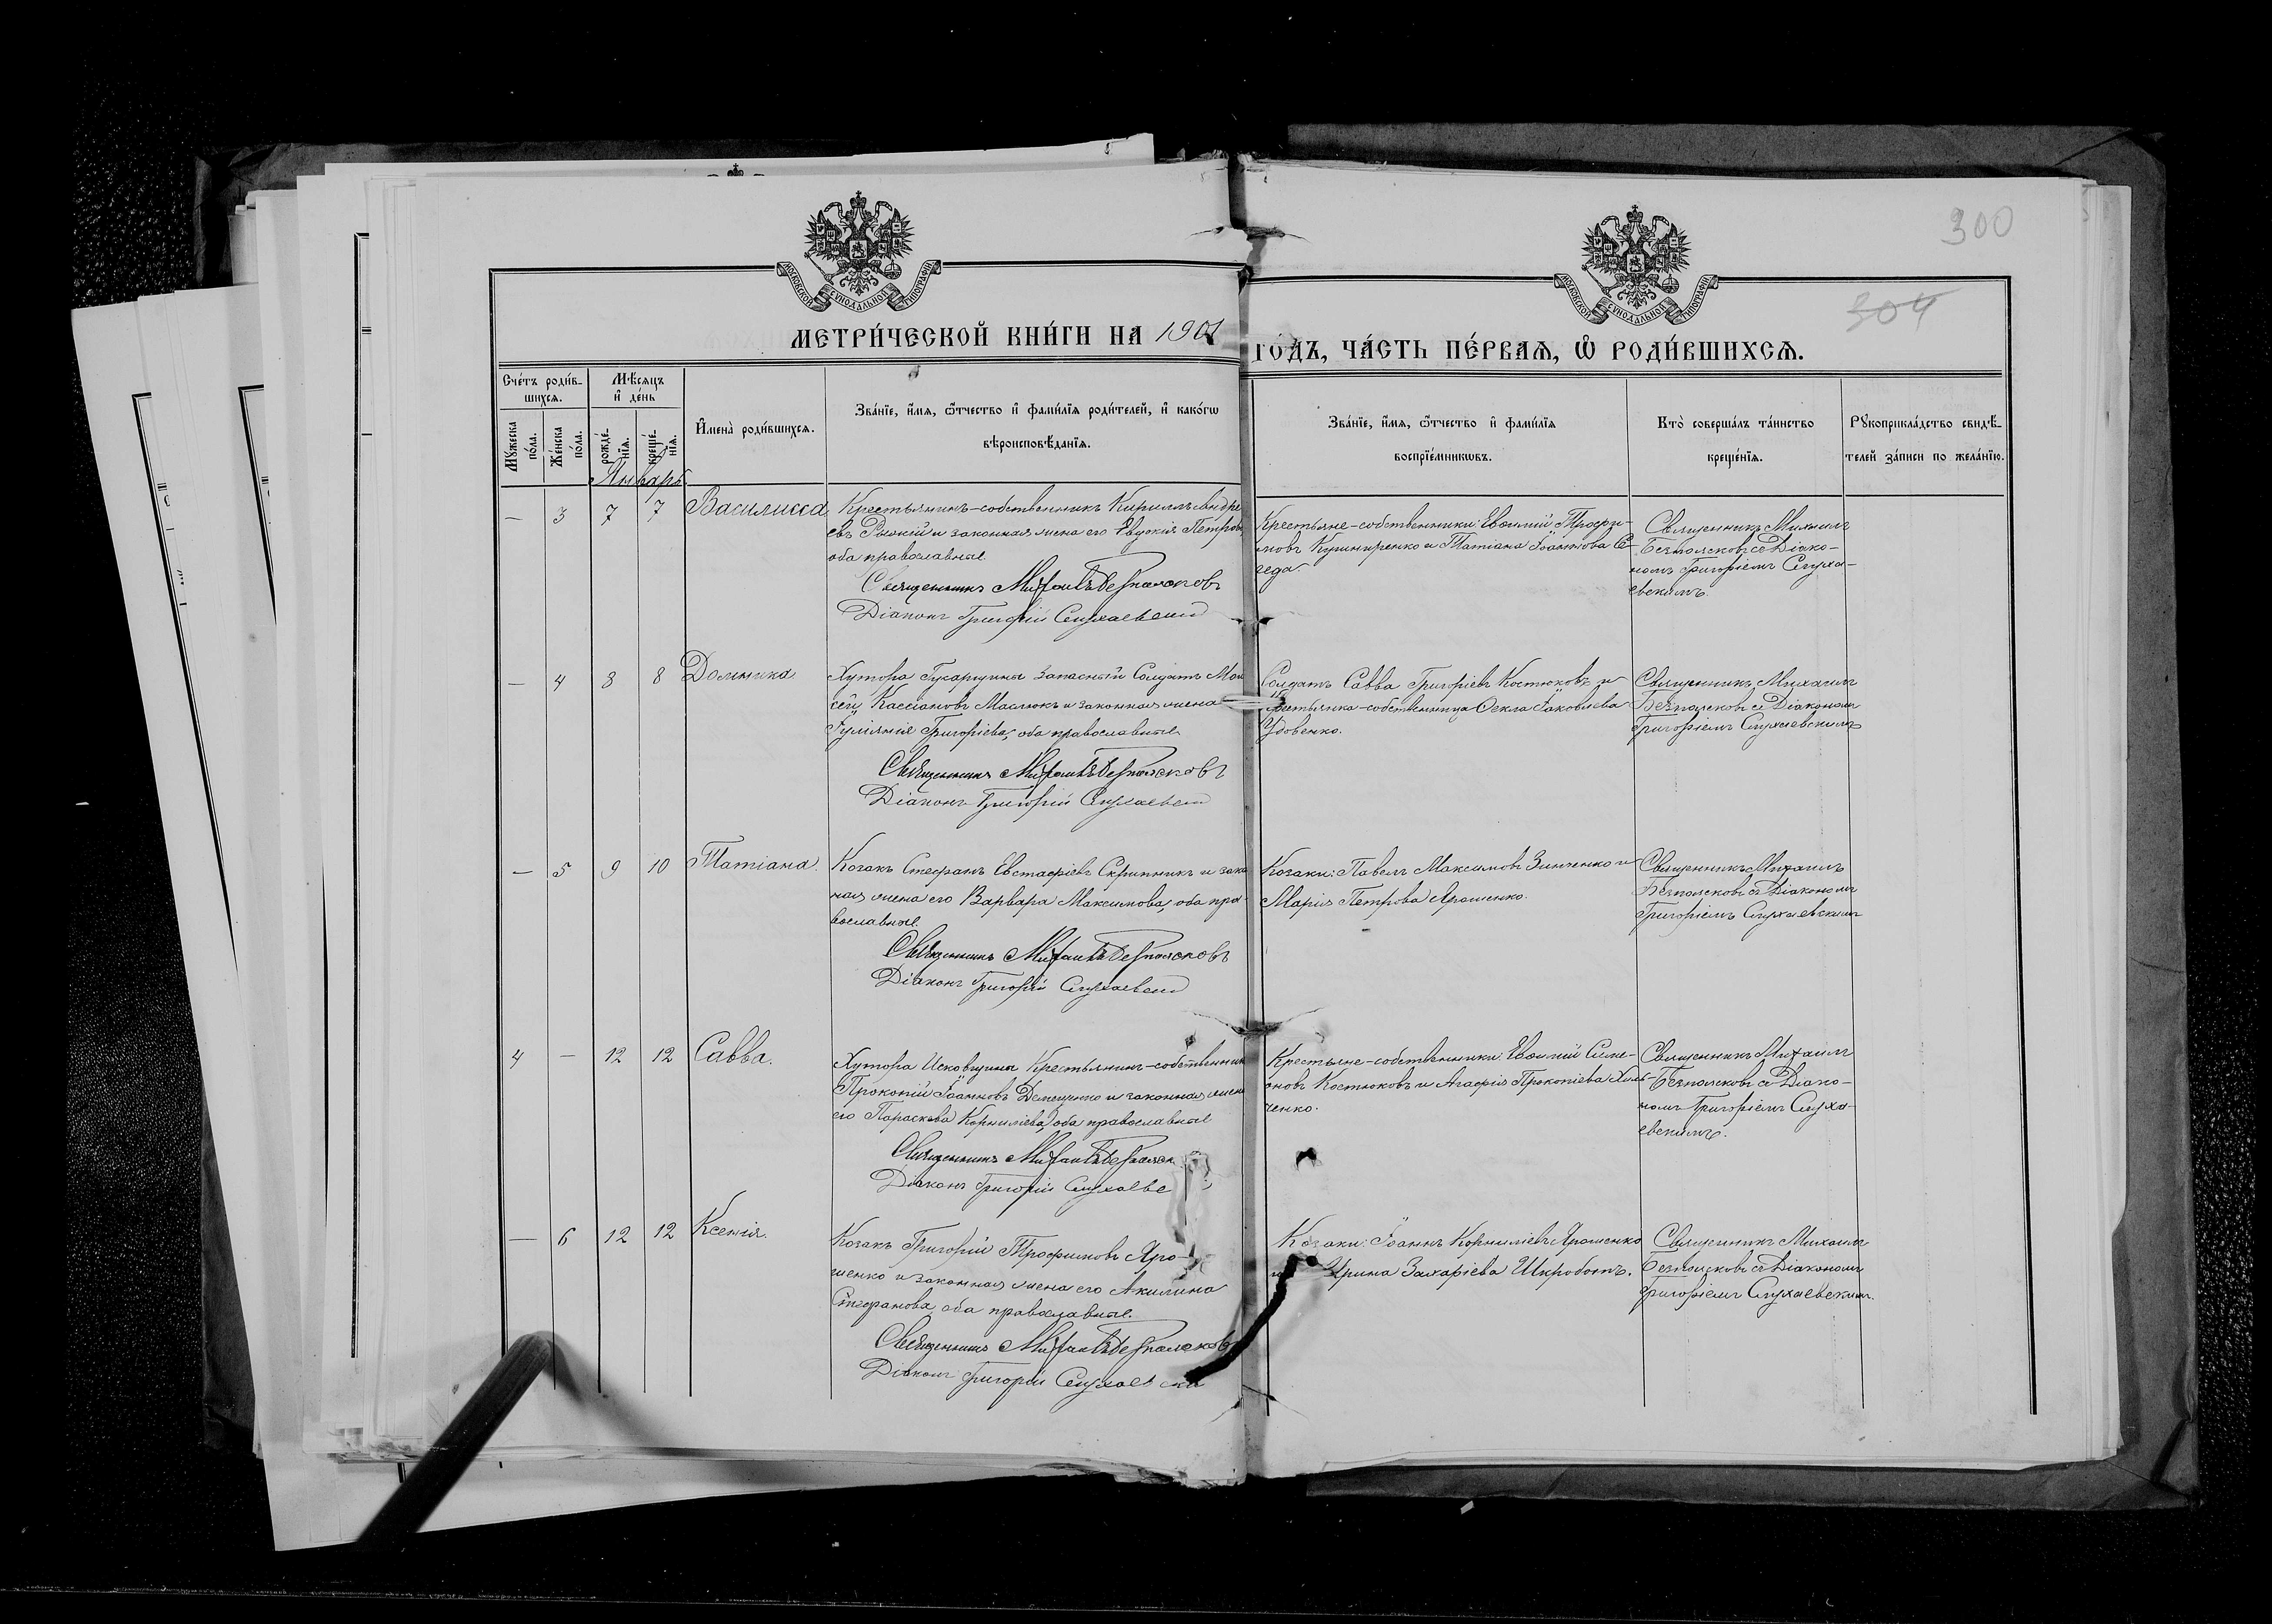 300
304
МОСКОВСКОЙ СУНОДАЛЬНОЙ ТИПОГРАФІИ
МОСКОВСКОЙ СУНОДАЛЬНОЙ ТИПОГРАФІИ
МЕТРИ́ЧЕСКОЙ КНИ́ГИ НА 1901 ГО́ДЪ, ЧА́СТЬ ПЕ́РВАЯ, Ѽ РОДИ́ВШИХСЯ.
Сче́тъ роди́в-
шихся.
Мѣсяцъ
и҆ де́нь
Мꙋжеска
по́ла.
Же́нска
по́ла.
рожде́-
нїя.
креще́-
нїя.
И҆мена̀ роди́вшихся.
Зва́нїе, и҆́мя, ѻ҆́тчество и҆ фами́лїя роди́телей, и҆ како́гѡ
вѣроисповѣ́данїя.
Зва́нїе, и҆́мя, ѻ҆́тчество и҆ фами́лїя
воспрїе́мникѡвъ.
Кто̀ соверша́лъ та́инство
креще́нїя.
Рꙋкоприкла́дство свидѣ́-
телей за́писи по жела́нїю.
Январь
— 3 7 7 Василисса
Крестьянинъ-собственникъ Кириллъ Андре
евъ и законная жена его Евдокія Петрова
оба православные.
Священникъ Михаилъ Безпалсковъ
Діаконъ Григорій Слухаевскій
Крестьяне-собственники: Евѳимій Трофи-
мовъ Кушниренко и Татіана Іоаннова Се-
геда.
Священникъ Михаилъ
Безпалсковъ съ Діако-
номъ Григоріемъ Слуха-
евскимъ.
— 4 8 8 Домника
Хутора Гусарщины Запасный Солдатъ Мои
сей Кассіановъ Маслюкъ и законная жена
Іуліанія Григоріева, оба православные
Священникъ Михаилъ Безпалсковъ
Діаконъ Григорій Слухаевскій
Солдатъ Савва Григоріевъ Костюковъ и
Крестьянка-собственница Ѳекла Іаковлева
Удовенко.
Священникъ Михаилъ
Безпалсковъ съ Діакономъ
Григоріемъ Слухаевскимъ
— 5 9 10 Татіана.
Козакъ Стефанъ Евстафіевъ Скрипникъ и зако
ная жена его Варвара Максимова, оба пра-
вославные.
Священникъ Михаилъ Безпалсковъ
Діаконъ Григорій Слухаевскій
Козаки: Павелъ Максимовъ Зинченко и
Марія Петрова Ярошенко.
Священникъ Михаилъ
Безпалсковъ съ Діакономъ
Григоріемъ Слухаевскимъ
4 — 12 12 Савва.
Хутора Исковщины Крестьянинъ-собственник
Прокопій Іоанновъ Демченко и законная жена
его Параскева Корниліева, оба православные
Священникъ Михаилъ Безпалск
Діаконъ Григорій Слухаевс
Крестьяне-собственники: Евѳимій Симе-
оновъ Костюковъ и Агафія Прокопіева
ченко.
Священникъ Михаилъ
Безпалсковъ съ Діако-
номъ Григоріемъ Слуха-
евскимъ.
— 6 12 12 Ксенія.
Козакъ Григорій Трофимовъ Яро-
шенко и законная жена его Акилина
Стефанова, оба православные.
Священникъ Михаилъ Безпалсковъ
Діаконъ Григорій Слухаевскій
Козаки: Іоаннъ Корниліевъ Ярошенко
и Ирина Захаріева Шкроботъ.
Священникъ Михаилъ
Безпалсковъ съ Діакономъ
Григоріемъ Слухаевскимъ.